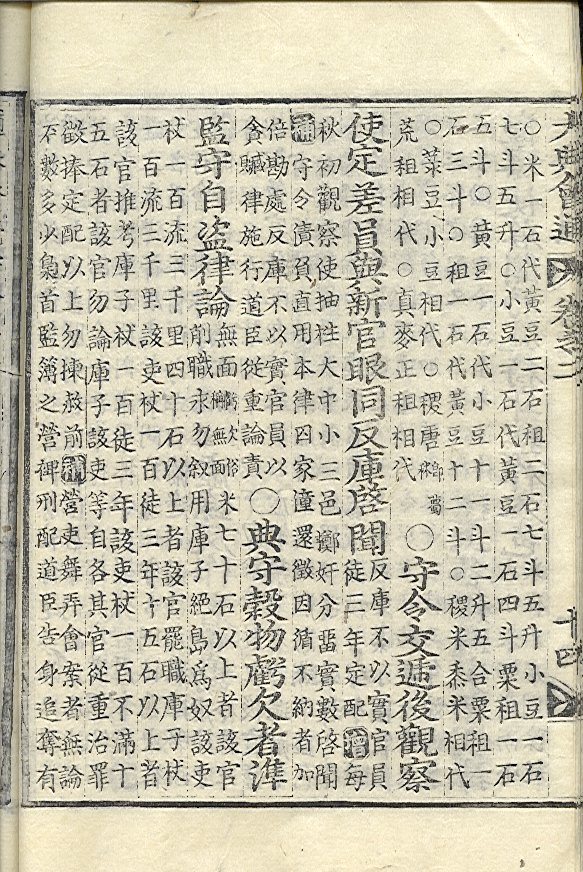 大典會通 卷之二 十四
○米一石代黃豆二石租二石七斗五升小豆一石
七斗五升○小豆一石代黃豆一石四斗粟租一石
五斗○黃豆一石代小豆十一斗二升五合粟租一
石三斗○租一石代黃豆十二斗○稷米黍米相代
○菉豆小豆相代○稷唐
荒租相代○真麥正租相代
○守令交遞後觀察
使定差員與新官眼同反庫啓聞
反庫不以實官員
徒三年定配增每
秋初觀察使抽栍大中小三邑擲奸分畱實數啓聞
補守令瀆負直用本律四家僮還徵因循不納者加
倍勘處反庫不以實官員以
貪贓律施行道臣從重論責
○典守穀物虧欠者準
監守自盜律論
無面虧欠俗稱無面米七十石以上者該官
削職永勿叙用庫子絕島爲奴該吏
杖一百流三千里四十石以上者該官罷職庫子杖
一百流三千里該吏杖一百徒三年十五石以上者
該官推考庫子杖一百徒三年該吏杖一百不滿十
五石者該官勿論庫子該吏等自各其官從重治罪
徵捧定配以上勿揀赦前補營吏舞弄會案者無論
石數多少梟首監簿之營裨刑配道臣告身追奪有